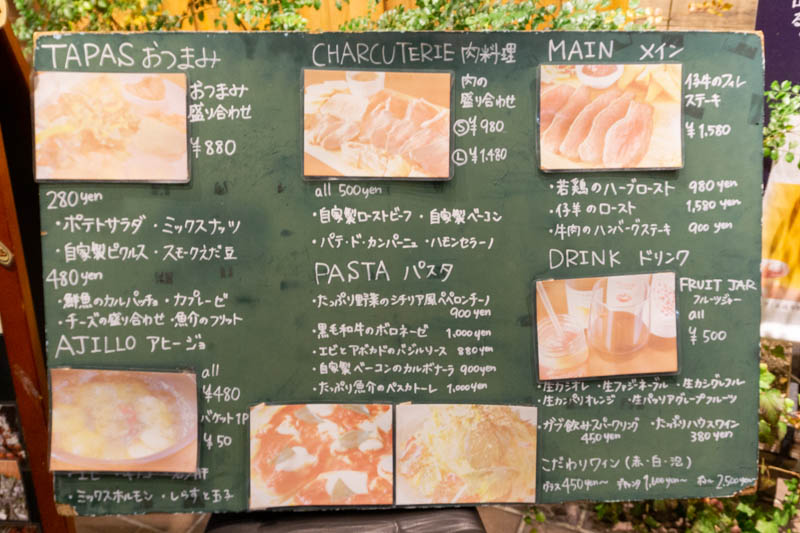 TAPAS おつまみ
おつまみ
盛り合わせ
¥880
280yen
・ポテトサラダ ・ミックスナッツ
・自家製ピクルス ・スモークえだ豆
480yen
・鮮魚のカルパッチョ ・カプレーゼ
・チーズの盛り合わせ ・魚介のフリット
AJILLO アヒージョ
all
¥480
バケット1P
¥50
・ミックスホルモン ・しらすと玉子
CHARCUTERIE 肉料理
肉の
盛り合わせ
Ⓢ ¥980
Ⓛ ¥1,480
all 500yen
・自家製ローストビーフ ・自家製ベーコン
・パテ・ド・カンパーニュ ・ハモンセラーノ
PASTA パスタ
・たっぷり野菜のシチリア風ペペロンチーノ
900yen
・黒毛和牛のボロネーゼ 1,000yen
・エビとアボカドのバジルソース 880yen
・自家製ベーコンのカルボナーラ 900yen
・たっぷり魚介のペスカトーレ 1,000yen
MAIN メイン
仔牛のフィレ
ステーキ
¥1,580
・若鶏のハーブロースト 980yen
・仔羊のロースト 1,580yen
・牛肉のハンバーグステーキ 900yen
DRINK ドリンク
FRUIT JAR
フルーツジャー
all
¥500
・生カシオレ ・生ファジーネーブル ・生カシグレフル
・生カンパリオレンジ ・生パッソアグレープフルーツ
・ガブ飲みスパークリング ・たっぷりハウスワイン
450yen 380yen
こだわりワイン (赤・白・泡)
グラス450yen〜 デキャンタ1,600yen〜 ボトル2,500yen〜